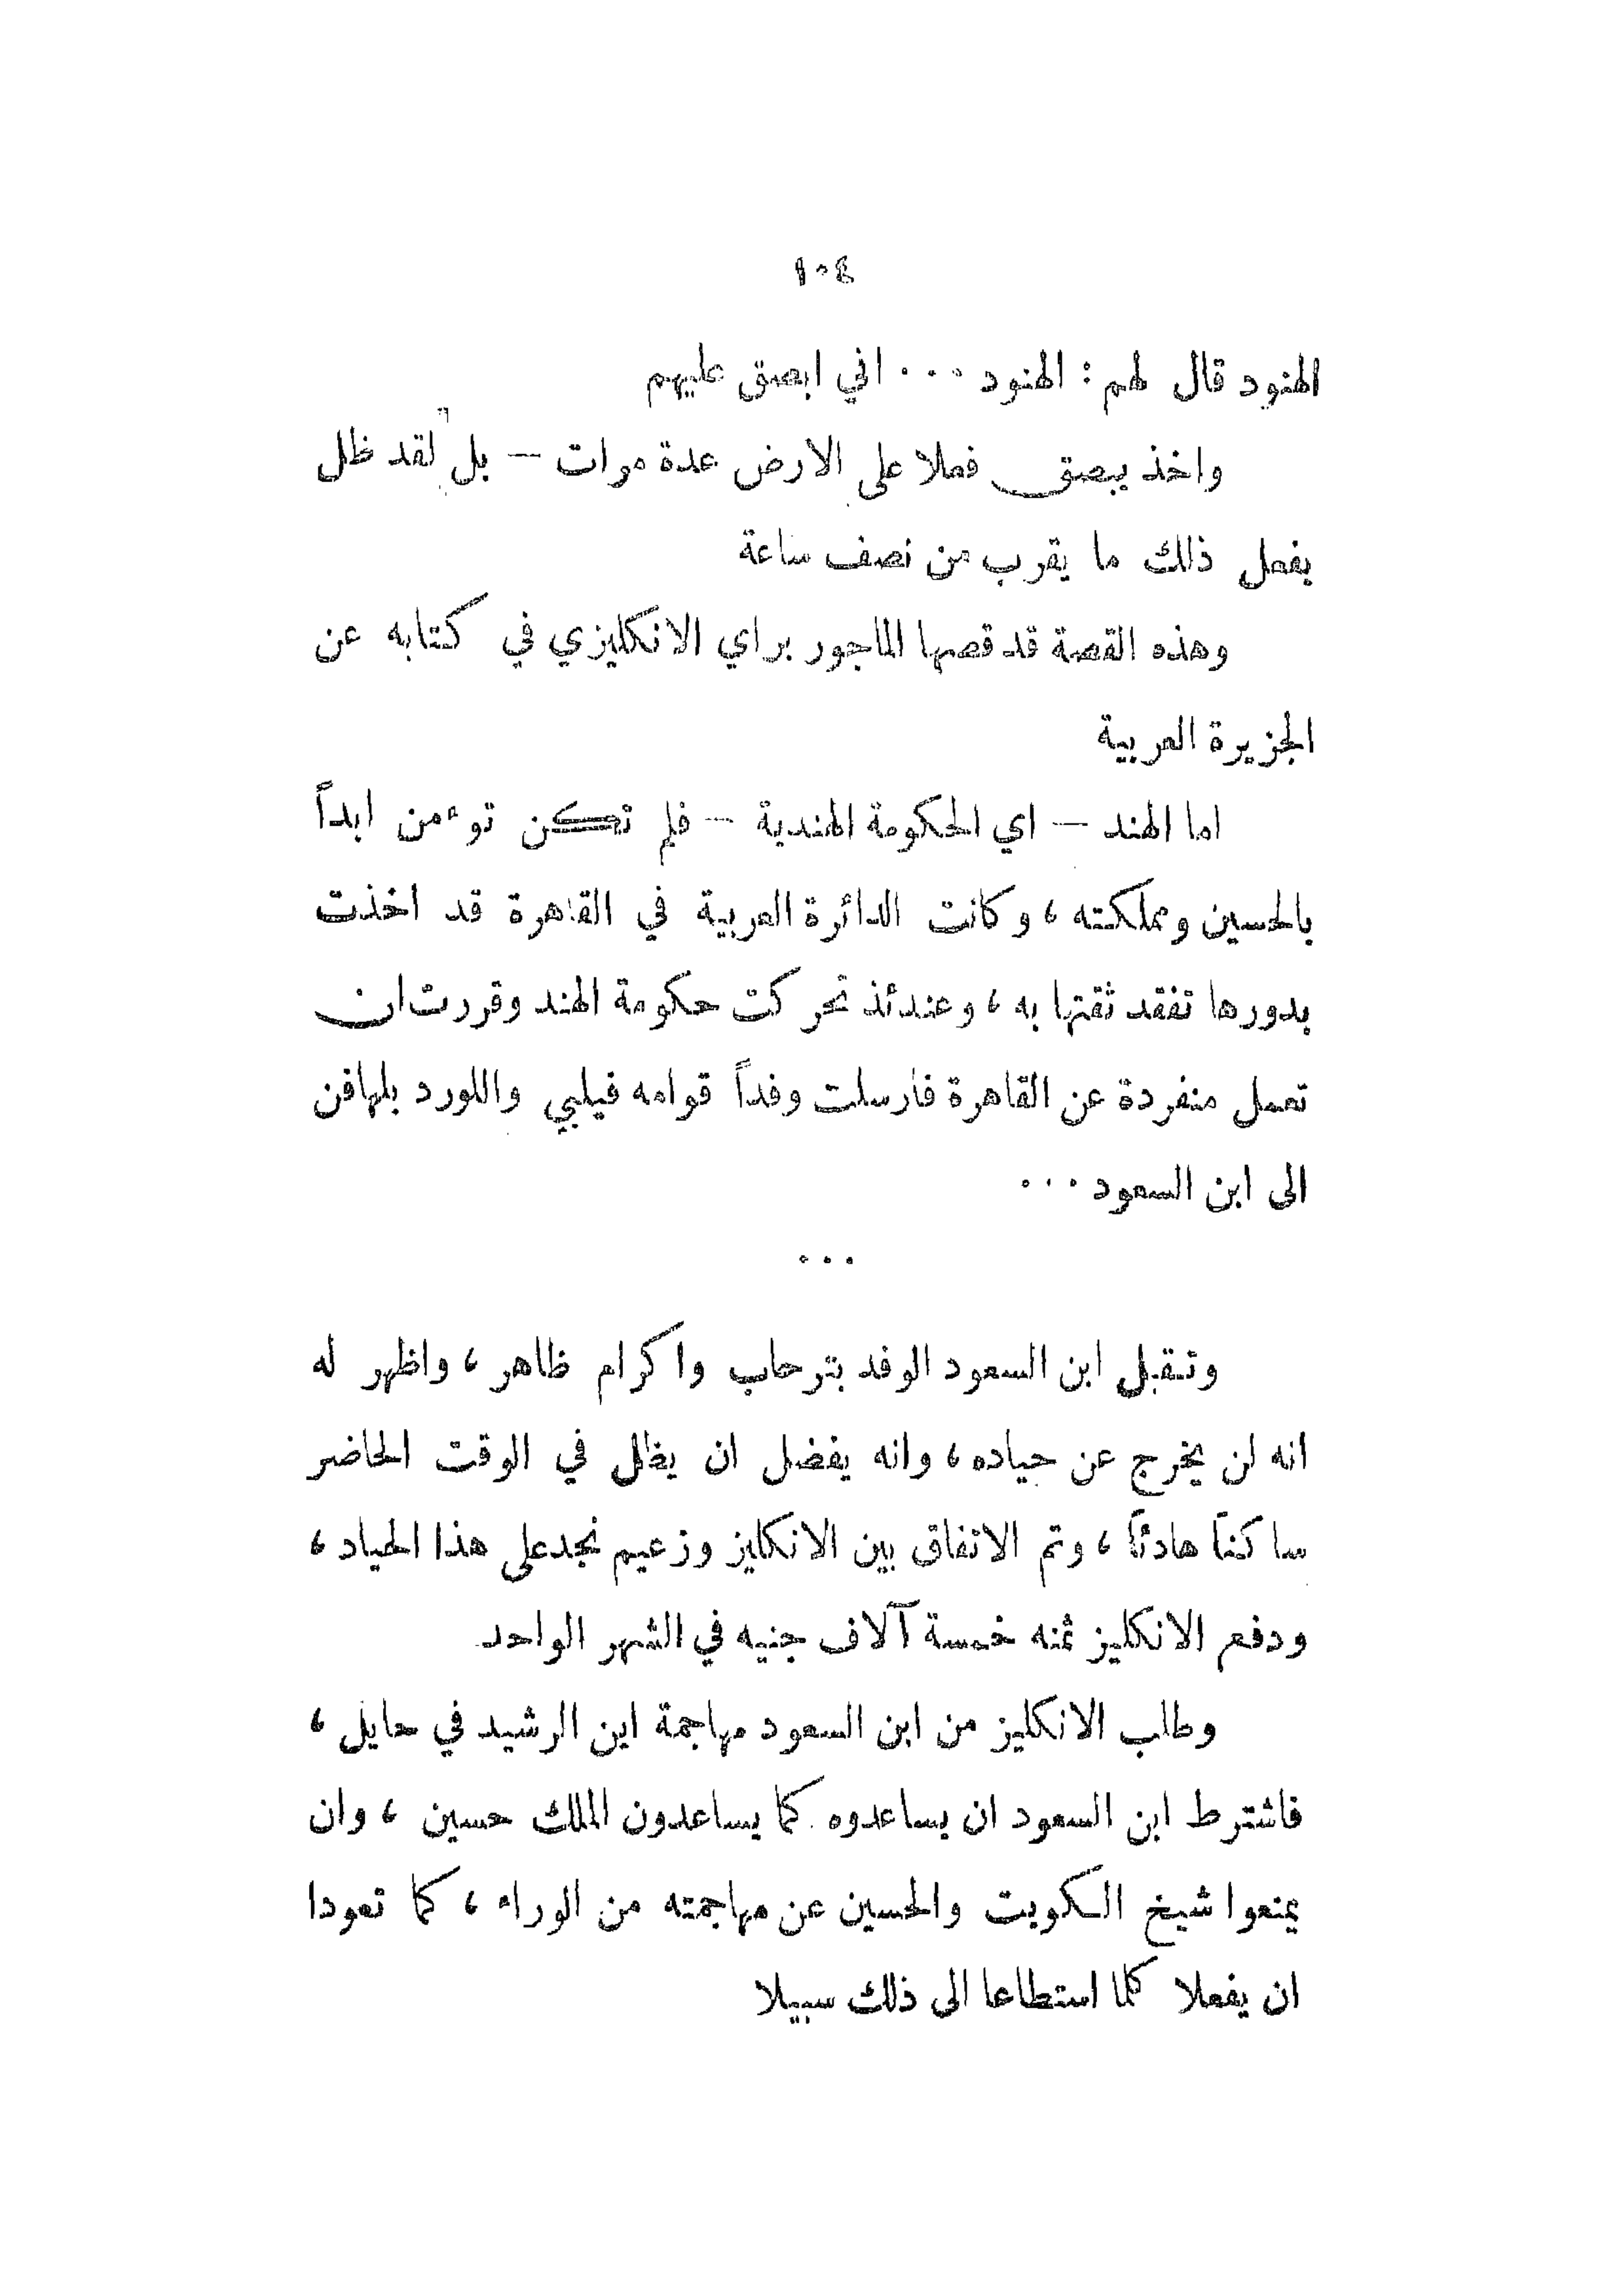 ١٠٤
الهنود قال لهم : الهنود ٠٠٠ اني ابصق عليهم
واخذ يبصق فعلا على الارض عدة مرات — بل لقد ظل
يفعل ذلك ما يقرب من نصف ساعة
وهذه القصة قد قصها الماجور براي الانكليزي في كتابه عن
الجزيرة العربية
اما الهند — اي الحكومة الهندية — فلم تكن توءمن ابداً
بالحسين ومملكته ، وكانت الدائرة العربية في القاهرة قد اخذت
بدورها تفقد ثقتها به ، وعندئذ تحركت حكومة الهند وقررت ان
تعمل منفردة عن القاهرة فارسلت وفداً قوامه فيلبي واللورد بلهافن
الى ابن السعود ٠٠٠
٠٠٠
وتقبل ابن السعود الوفد بترحاب واكرام ظاهر ، واظهر له
انه لن يخرج عن حياده ، وانه يفضل ان يظل في الوقت الحاضر
ساكناً هادئاً ، وتم الاتفاق بين الانكليز وزعيم نجد على هذا الحياد ،
ودفع الانكليز ثمنه خمسة آلاف جنيه في الشهر الواحد
وطلب الانكليز من ابن السعود مهاجمة ابن الرشيد في حايل ،
فاشترط ابن السعود ان يساعدوه كما يساعدون الملك حسين ، وان
يمنعوا شيخ الكويت والحسين عن مهاجمته من الوراء ، كما تعودا
ان يفعلا كلما استطاعا الى ذلك سبيلا